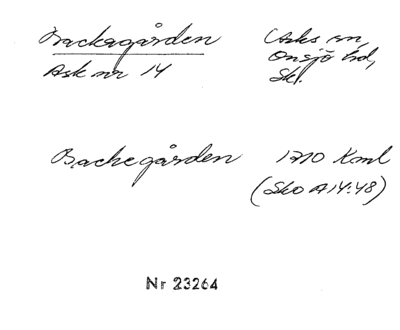 Backagården Asks sn,
Ask nr 14 Onsjö hd,
Skl.
Backegården 1710 Kml
(Sko A14:48)
Nr 23264